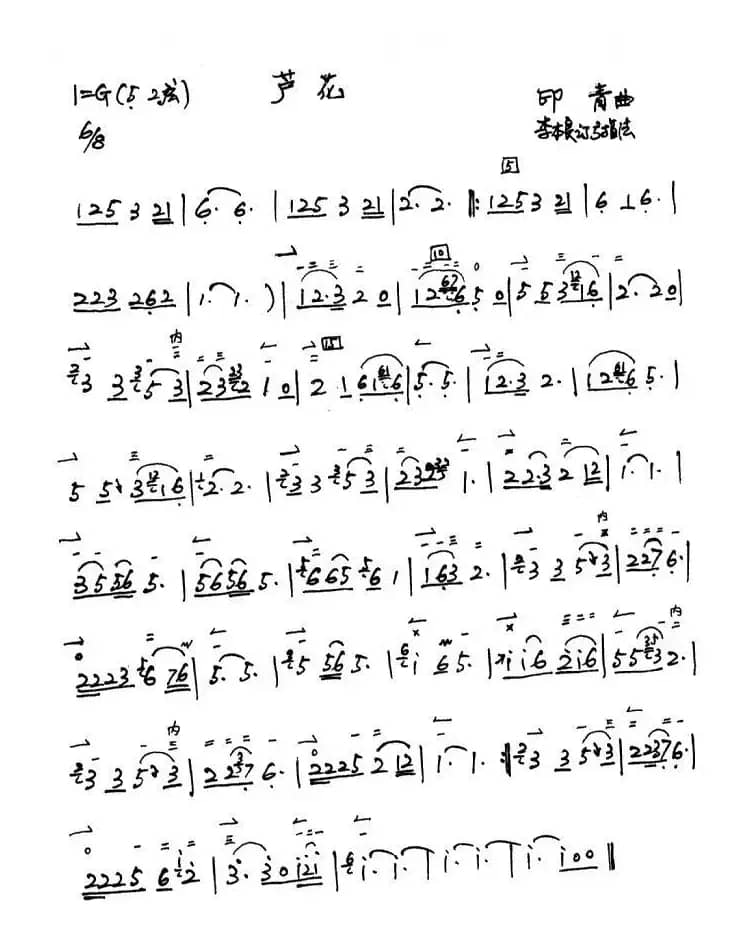 1=G(5 2弦) 芦花 印青曲
6/8 李本良订弓指法
5
125 3 21 | 6. 6. | 125 3 21 | 2. 2. ‖: 125 3 21 | 6 1 6. |
10
223 262 | 1. 1. ) | 12.3 2 0 | 12 6 5 0 | 5 5 3 12 16 | 2. 20 |
内 15
3 3 5 3 | 23 2 1 0 | 2 1 61 6 | 5. 5. | 12.3 2. | 12 6 5. |
5 5 3 12 16 | 2. 2. | 3 3 5 3 | 23 1. | 22.3 2 12 | 1. 1. |
内
3556 5. | 5656 5. | 665 6 1 | 163 2. | 3 3 5 3 | 2276. |
内
2223 6 76 | 5. 5. | 5 56 5. | i 6 5. | i i6 2i6 | 55 35 32. |
内
3 3 5 3 | 2237 6. | 2225 2 12 | 1. 1. :‖ 3 3 5 3 | 2237 6. |
2225 6 2 | 3. 30 i2i | i. i. | i. i. | i. i00 ‖